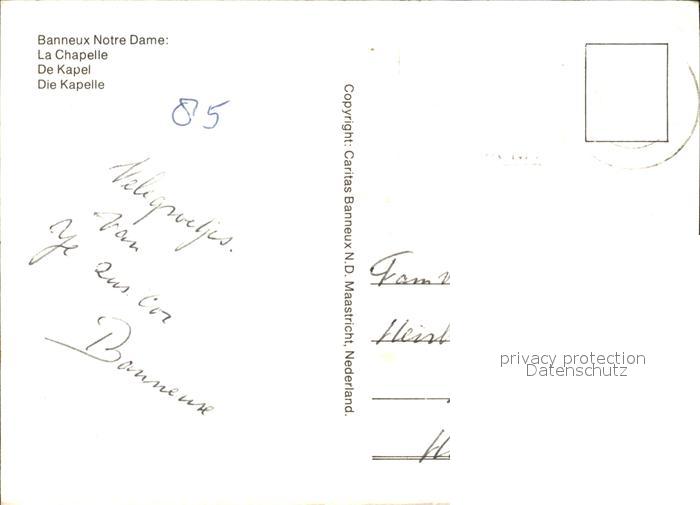 Banneux Notre Dame:
La Chapelle
De Kapel
Die Kapelle
85
Vele groetjes.
van
Je zus Cor
Banneux
Copyright: Caritas Banneux N.D. Maastricht, Nederland.
Fam
privacy protection
Datenschutz